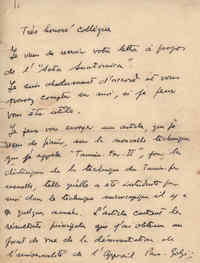 Très honoré collègue
Je viens de recevoir votre lettre à propos
de l'"Acta Anatomica".
Je suis absolument d'accord et vous
pouvez compter sur moi, si je peux
vous être utile.
Je peux vous envoyer un article, que je
de finir, sur la nouvelle technique
que j'appelle "Tannin-Fer-II", pour la
distinguer de la technique du Tannin-fer
usuelle, telle qu'elle a été introduite par
moi dans la technique microscopique il y a
quelques années. L'article contient les
résultats principales que j'ai obtenu au
point de vue de la démonstration de
l'universalité de l'Appareil Golgi